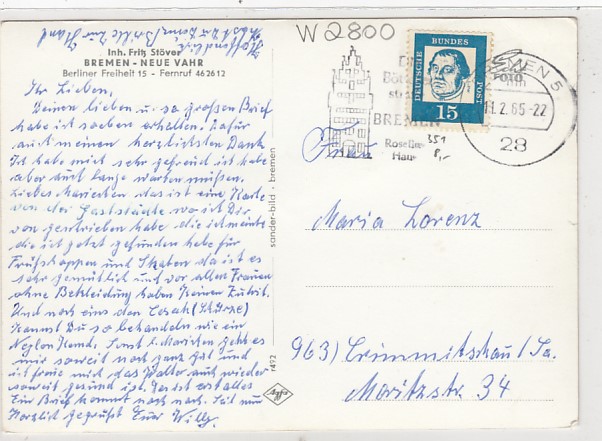 W 2800
Inh. Fritz Stöver
BREMEN - NEUE VAHR
Berliner Freiheit 15 - Fernruf 462612
Ihr Lieben,
Deinen lieben u. so großen Brief
habe ich soeben erhalten. Dafür
auch meinen herzlichsten Dank
Ich habe mich sehr gefreut ich habe
aber auch lange warten müssen.
Liebes Mariechen das ist eine Karte
von der Gaststädte wo ich Dir
von geschrieben habe die ich meinte
die ich jetzt gefunden habe für
Frühschoppen und Skaten da ist es
sehr gemütlich und vor allen Frauen
ohne Bekleidung haben keinen Zutrit.
Und noch eins den
kannst Du so behandeln wie ein
Nylon Hemd. Sonst l. Mariechen geht es
mir soweit noch ganz gut und
ich freue mich das Walter auch wieder
soweit gesund ist. Jetzt erst alles
Ein Brief kommt noch nach. Seit nun
Herzlich gegrüßt Euer Willy.
sander-bild · bremen
1492
Agfa
DEUTSCHE BUNDESPOST
15
BREMEN
Roselius
Haus
351
8,-
BREMEN 5
11.2.65-22
28
FOTO
Maria Lorenz
963) Crimmitschau/Sa.
Moritzstr. 34